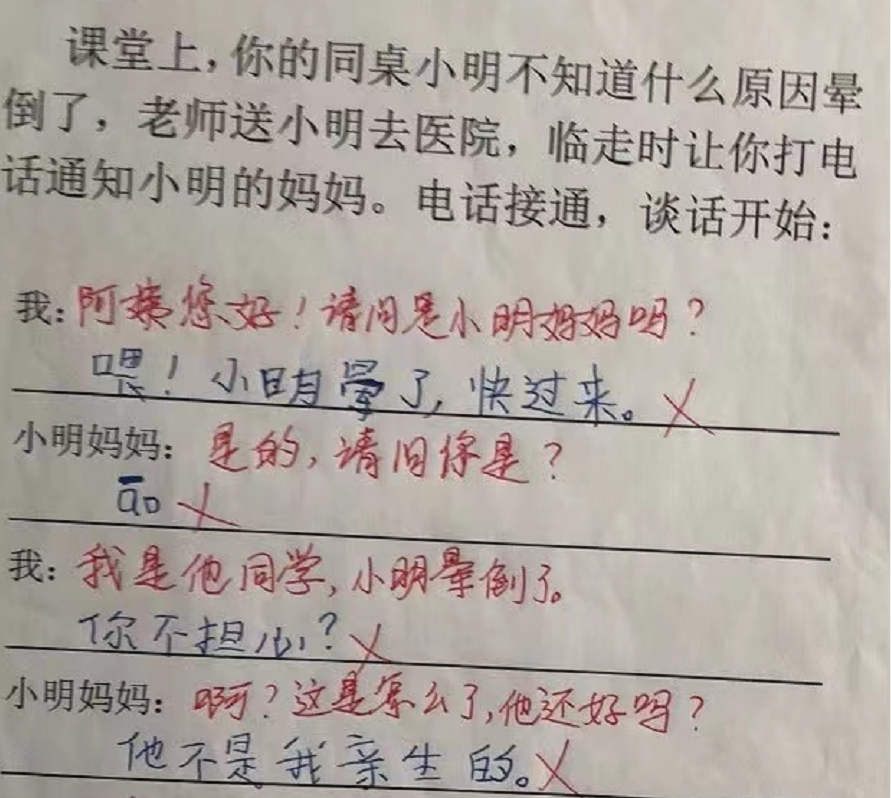 课堂上，你的同桌小明不知道什么原因晕
倒了，老师送小明去医院，临走时让你打电
话通知小明的妈妈。电话接通，谈话开始：
我：阿姨您好！请问是小明妈妈吗？
喂！小明晕了，快过来。
小明妈妈：是的，请问你是？
ā。
我：我是他同学，小明晕倒了。
你不担心？
小明妈妈：啊？这是怎么了，他还好吗？
他不是我亲生的。